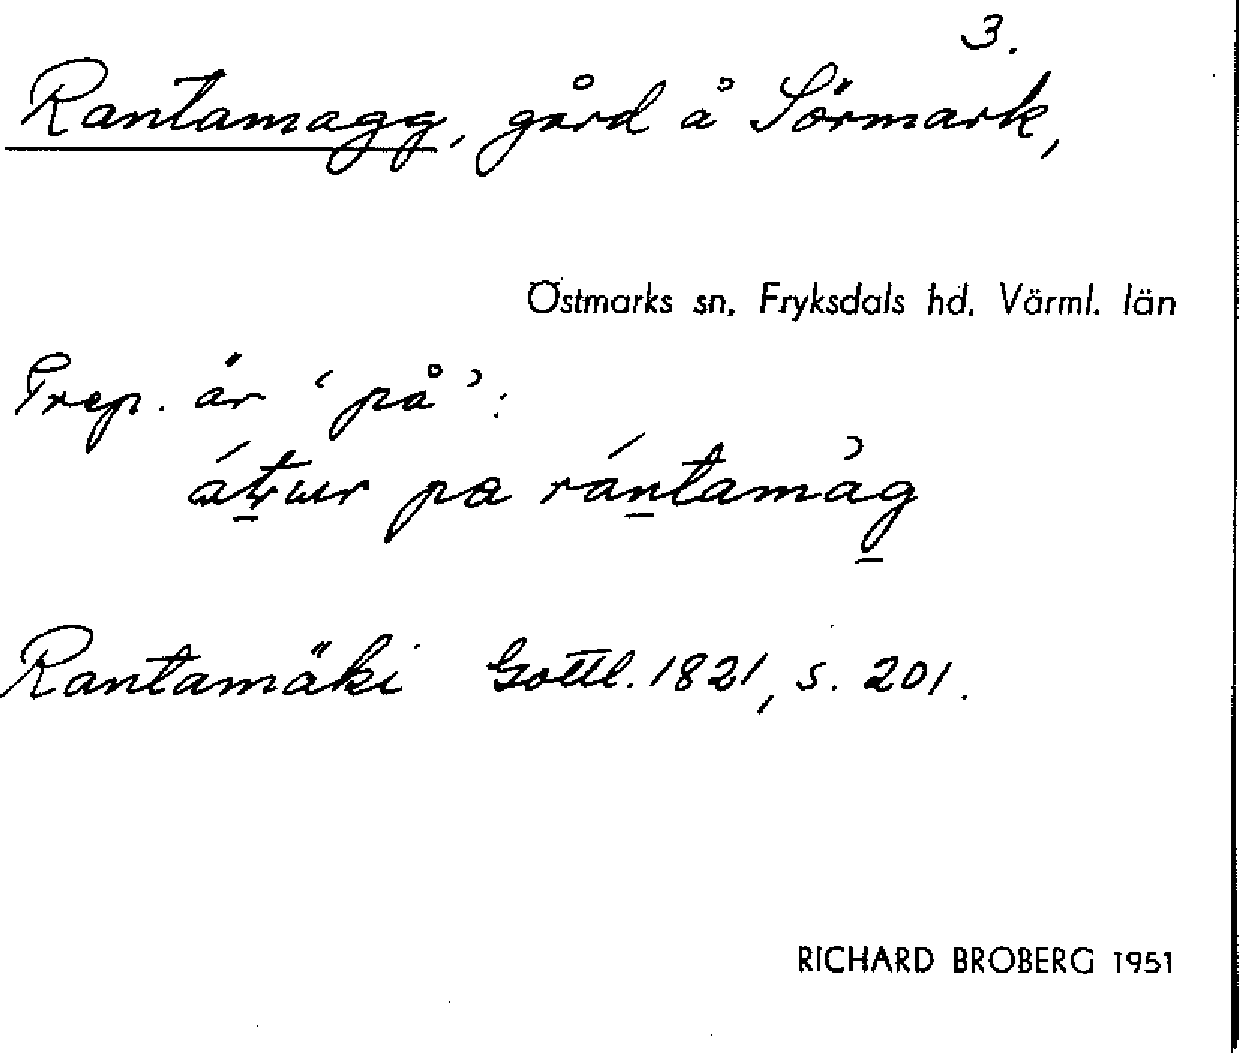 3.
Rantamagg, gård å Sörmark,
Östmarks sn, Fryksdals hd, Värml. län
Prep. är 'på':
pa rántamàg
Rantamäki Gottl. 1821, s. 201.
RICHARD BROBERG 1951